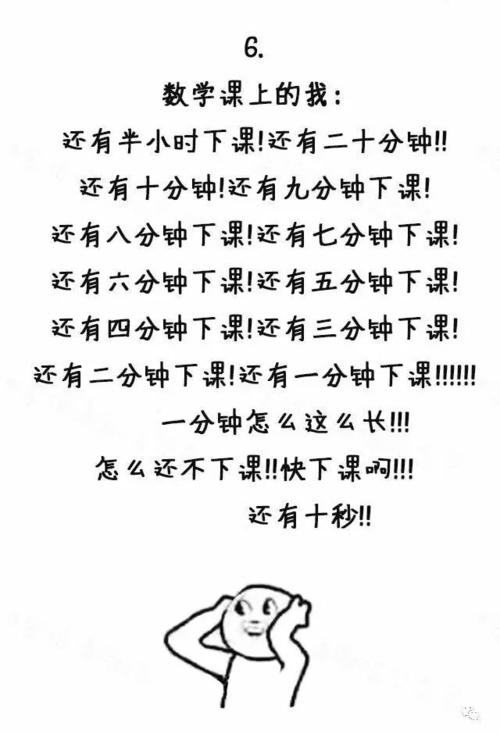 6.
数学课上的我:
还有半小时下课!还有二十分钟!!
还有十分钟!还有九分钟下课!
还有八分钟下课!还有七分钟下课!
还有六分钟下课!还有五分钟下课!
还有四分钟下课!还有三分钟下课!
还有二分钟下课!还有一分钟下课!!!!!!
一分钟怎么这么长!!!
怎么还不下课!!快下课啊!!!
还有十秒!!